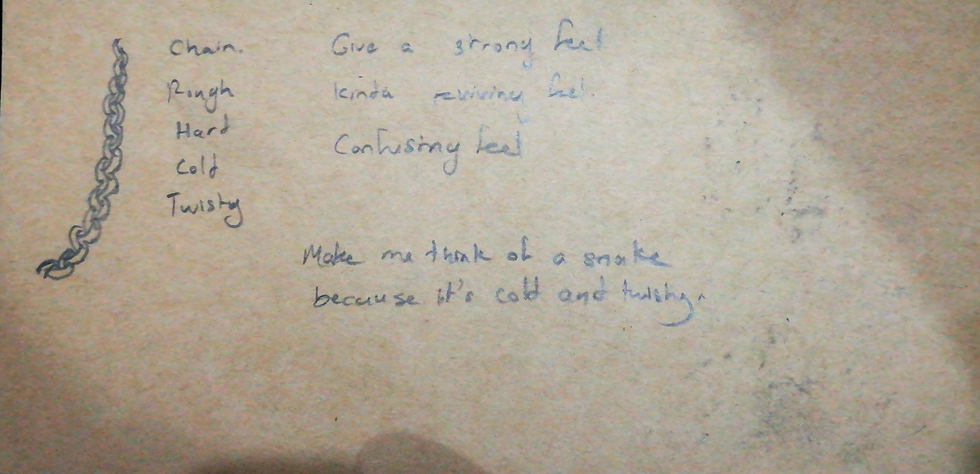 Chain.
Rough
Hard
Cold
Twisty
Give a strong feel
kinda reviving feel.
Confusing feel
Make me think of a snake
because it's cold and twisty.